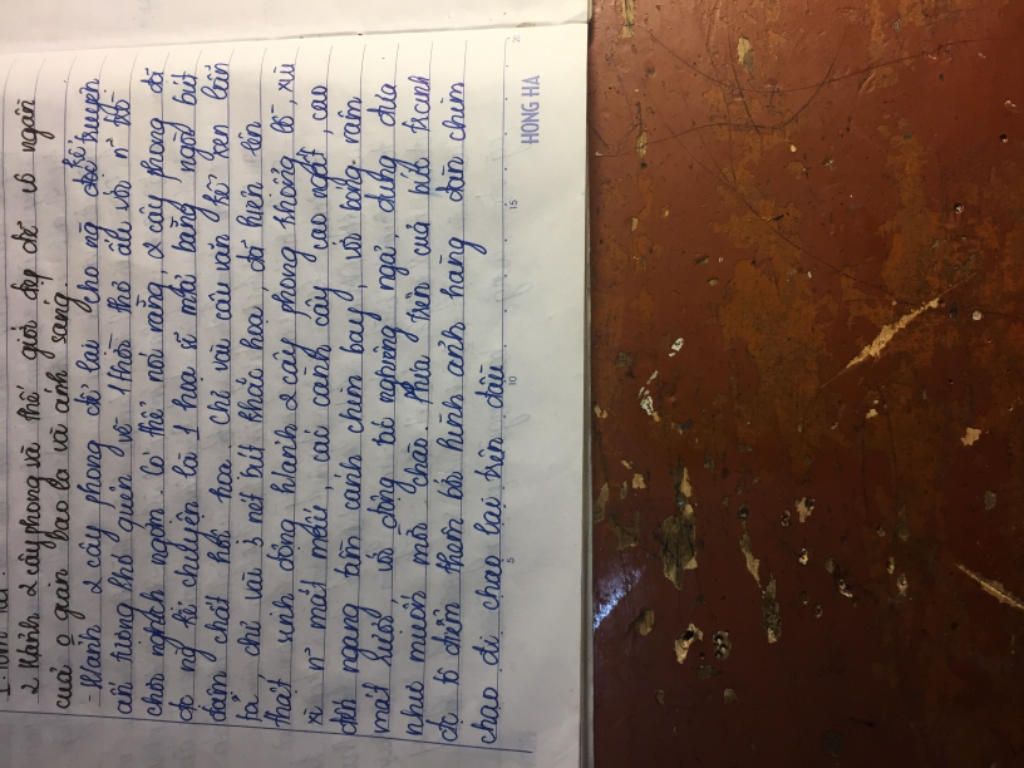 2 Hình 2 cây phong và thế giới đẹp đẽ vô ngần
của o gian bao la và ánh sáng
- Hình 2 cây phong để lại cho ng
ấn tượng khó quên về 1 thời thơ ấu với n' trò
chơi nghịch ngợm. Có thể nói rằng, 2 cây phong đã
đc ng kể chuyện là 1 họa sĩ mới bằng ngòi bút
đậm chất hội họa. Chỉ vài câu văn kể xen lẫn
tả, chỉ vài 3 nét bút khắc họa, đã hiện lên
thật sinh động h/ảnh 2 cây phong khổng lồ, xù
xì n' mắt mấu, vài cành cây cao ngất, cao
đến ngang tầm cánh chim bay, với bóng râm
mát rượi và động tác nghiêng ngả, đung đưa
như muốn mời chào. Phía trên của bức tranh
đc tô điểm thêm bởi hình ảnh hàng đàn chim
chao đi chao lại trên đầu
HONG HA
5
10
15
20